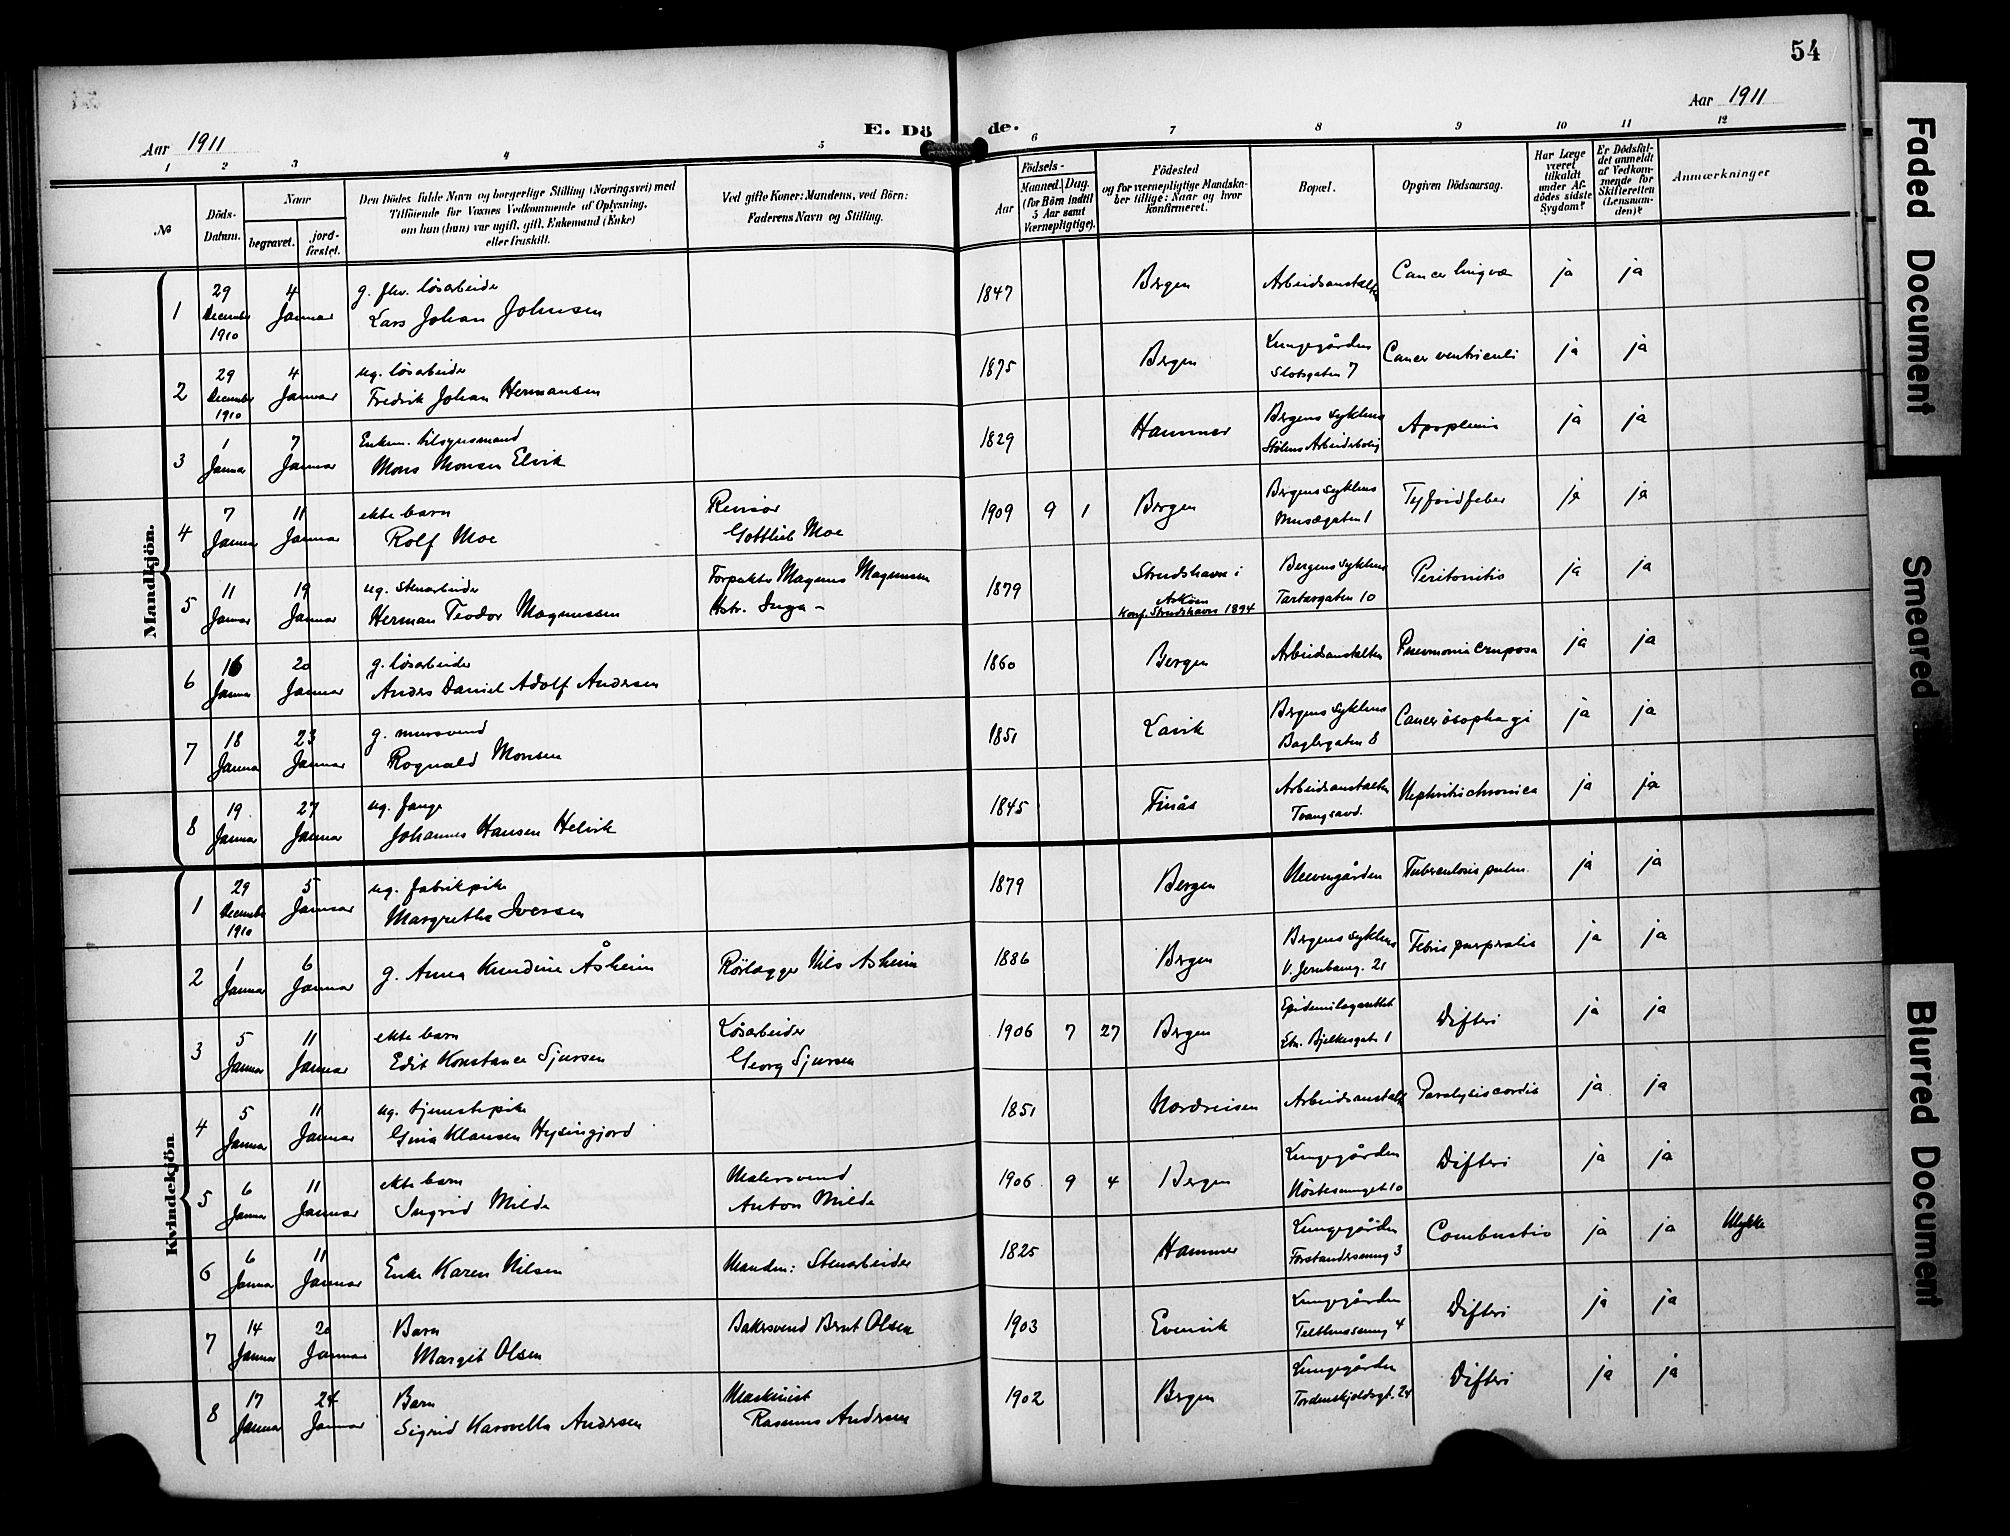 54
Aar 1911
E. Döde.
Aar 1911
1 2 3 4 5 6 7 8 9 10 11 12
No
Döds-Datum.
Naar
begravet.
jord-fæstet.
Den Dödes fulde Navn og borgerlige Stilling (Næringsvei) med
Tilföiende for Voxnes Vedkommende af Oplysning,
om han (hun) var ugift, gift, Enkemand (Enke)
eller fraskilt.
Ved gifte Koner: Mandens, ved Börn:
Faderens Navn og Stilling.
Födsels-
Aar
Maaned. Dag.
(for Börn indtil
5 Aar samt
Værnepligtige).
Födested
og for værnepligtige Mandska-
ber tillige: Naar og hvor
konfirmeret.
Bopæl.
Opgiven Dödsaarsag.
Har Læge
været
tilkaldt
under Af-
dödes sidste
Sygdom?
Er Dödsfal-
det anmeldt
af Vedkom-
mende for
Skifteretten
(Lensman-
den)?
Anmærkninger
Mandkjön.
1 29 December 1910 4 Januar g. flv. løsarbeider Lars Johan Johnsen 1847 Bergen Arbeidsanstalten Cancer lingvæ ja ja
2 29 December 1910 4 Januar ug. løsarbeider Fredrik Johan Hermansen 1875 Bergen Lungegården Slotsgaten 7 Cancer ventriculi ja ja
3 1 Januar 7 Januar Enkem. tilsynsmand Mons Monsen Elvik 1829 Hammer Bergens sykehus Stølens Arbeiderbolig Apoplexia ja ja
4 7 Januar 11 Januar ekte barn Rolf Moe Revisor Gottlieb Moe 1909 9 1 Bergen Bergens sykehus Museegaten 1 Tyfoidfeber ja ja
5 11 Januar 19 Januar ug. stenarbeider Herman Teodor Magnussen Forpakter Magnus Magnussen Hstr. Inga - 1879 Strudshavn i Askøen Konf. Strudshavn 1894 Bergens sykehus Tartargaten 10 Peritonitis ja ja
6 16 Januar 20 Januar g. løsarbeider Anders Daniel Adolf Andersen 1860 Bergen Arbeidsanstalten Pneumonia cruposa ja ja
7 18 Januar 23 Januar g. mursvend Rognald Monsen 1851 Lavik Bergens sykehus Baglergaten 8 Cancer øsophagi ja ja
8 19 Januar 27 Januar ug. fange Johannes Hansen Helvik 1845 Finås Arbeidsanstalten Tvangsavd. Nephritis chronica ja ja
Kvindekjön
1 29 December 1910 5 Januar ug. fabrikpike Margrethe Iversen 1879 Bergen Neevengården Tuberculosis pulm. ja ja
2 1 Januar 6 Januar g. Anna Knudine Åsheim Rørlægger Nils Asheim 1886 Bergen Bergens sykehus V. Jernbaneg. 21 Febris puerperalis ja ja
3 5 Januar 11 Januar ekte barn Edit Konstance Sjursen Løsarbeider Georg Sjursen 1906 7 27 Bergen Epidemilasarettet Etn. Bjelkesgate 1 Difteri ja ja
4 5 Januar 11 Januar ug. tjenestepike Gina Klausen Hysingjord 1851 Nordreisen Arbeidsanstalt Paralysis cordis ja ja
5 6 Januar 11 Januar ekte barn Ingrid Milde Malersvend Anton Milde 1906 9 4 Bergen Lungegården Nøstesmuget 10 Difteri ja ja
6 6 Januar 11 Januar Enke Karen Nilsen Manden: Stenarbeider 1825 Hammer Lungegården Forstandersmug 3 Combustio ja ja Ulykke
7 14 Januar 20 Januar Barn Margit Olsen Bakersvend Bernt Olsen 1903 Evenvik Lungegården Telthussmug 4 Difteri ja ja
8 17 Januar 24 Januar Barn Sigrid Andersen Maskinist Rasmus Andersen 1902 Bergen Lungegården Tordenskjoldsgt. 24 Difteri ja ja
Faded Document
Smeared
Blurred Document